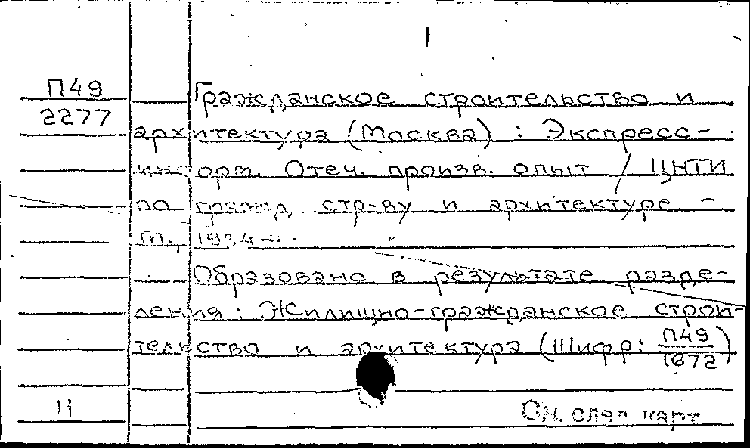 П49
2277
Гражданское строительство и
архитектура (Москва) : Экспресс-
информ. Отеч. произв. опыт / ЦНТИ
по гражд. стр-ву и архитектуре -
М.,
Образовано в результате разде-
ления: Жилищно-гражданское строи-
тельство и архитектура (Шифр: П49
1672)
См. след карт